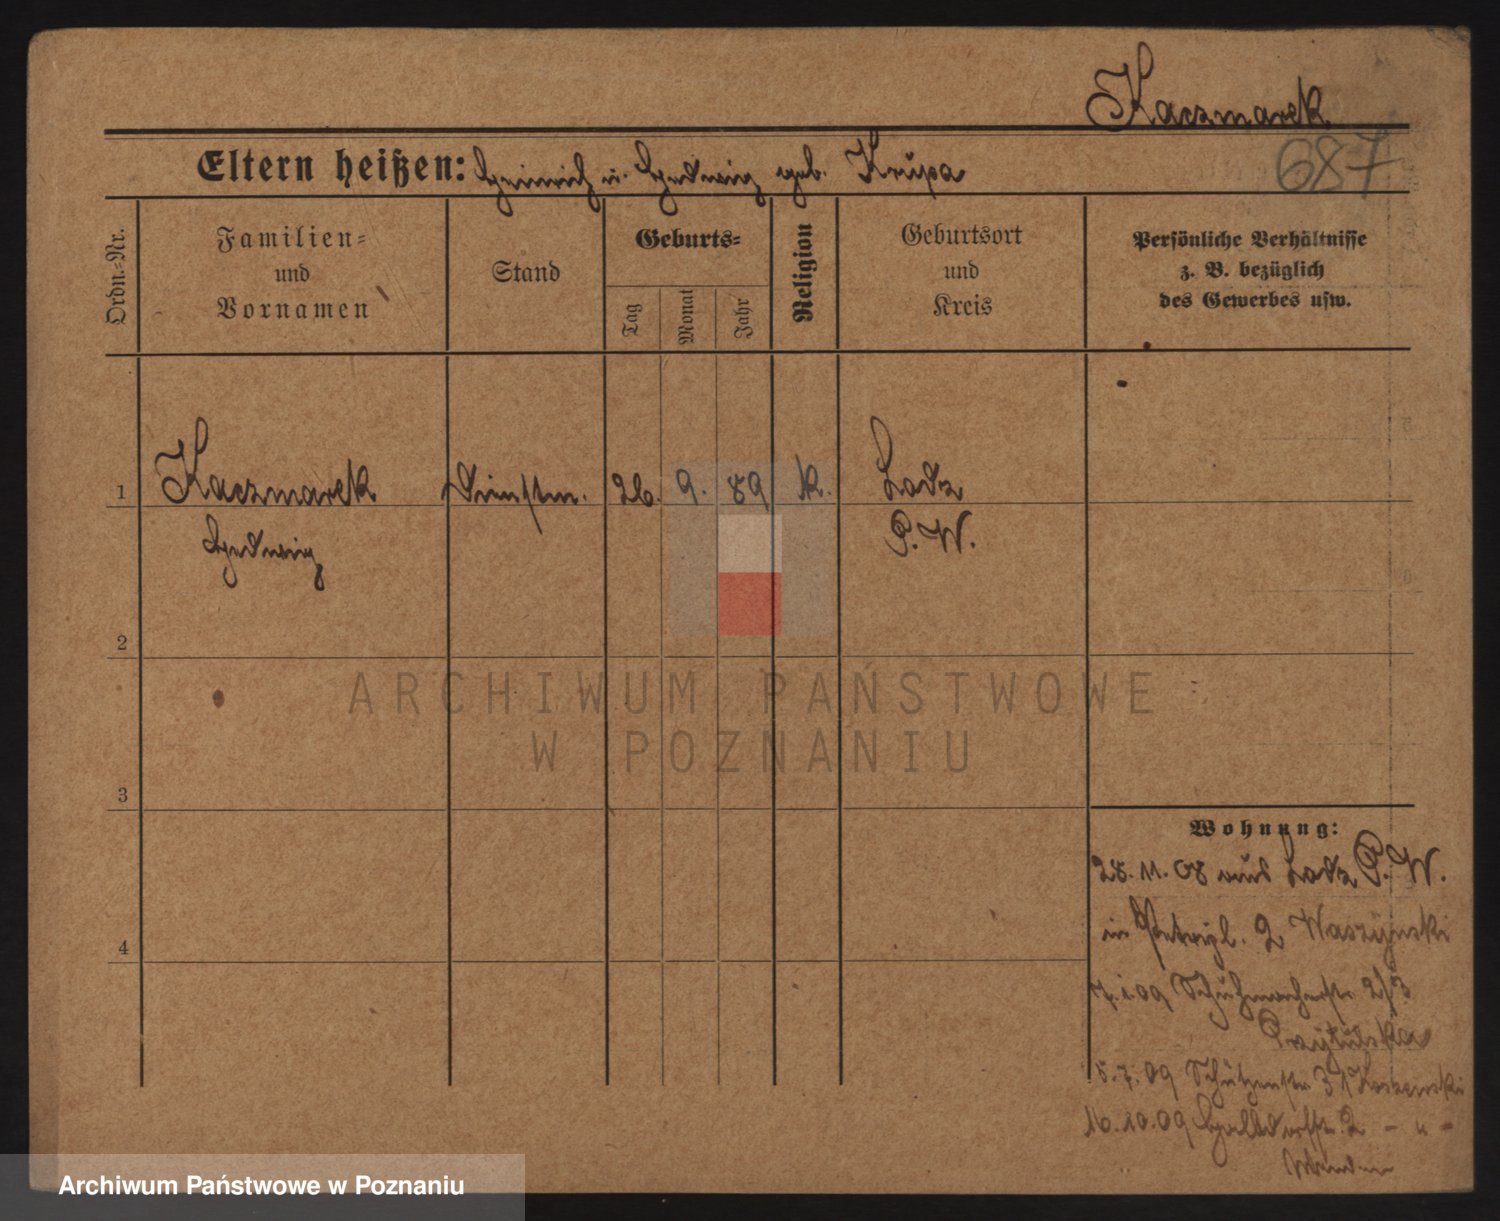 Kaczmarek
Eltern heißen: Heinrich u. Hedwig geb. Krupa
687
Ordn.-Nr.
Familien-
und
Vornamen
Stand
Geburts-
Tag
Monat
Jahr
Religion
Geburtsort
und
Kreis
Persönliche Verhältnisse
z. B. bezüglich
des Gewerbes usw.
1 Kaczmarek Dienstm. 26. 9. 89 k. Lodz
Hedwig P. W.
2
3
4
Wohnung:
28.11.08 aus Lodz P. W.
in 2 Waszynski
7.1.09 Schuhmacherstr 2/3
5.7.09 Schützenstr 31
16.10.09 2 - u -
ARCHIWUM PAŃSTWOWE
W POZNANIU
Archiwum Państwowe w Poznaniu